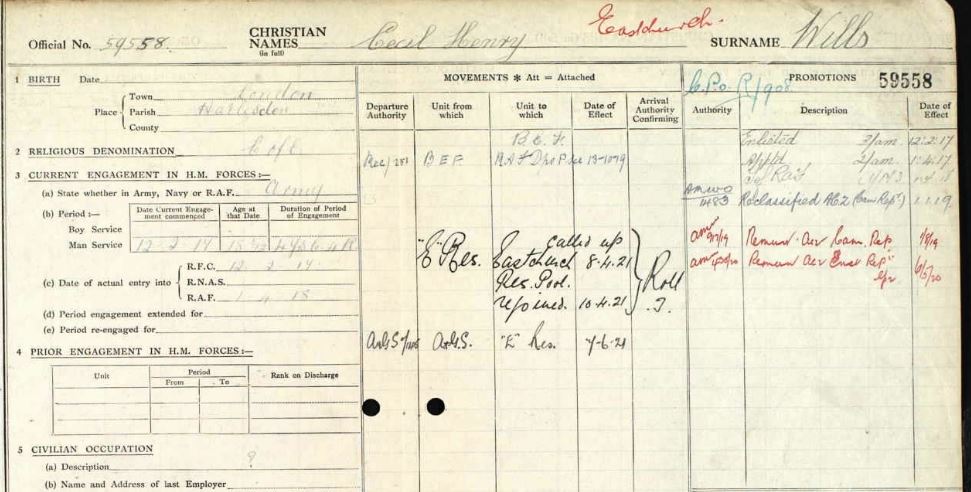 Eastchurch.
Official No. 59558. CHRISTIAN NAMES (in full) Cecil Henry SURNAME Wills
1 BIRTH Date
Place Town London
Parish Harlesden
County
2 RELIGIOUS DENOMINATION C of E
3 CURRENT ENGAGEMENT IN H.M. FORCES :—
(a) State whether in Army, Navy or R.A.F. Army
(b) Period :—
Date Current Engagement commenced Age at that Date Duration of Period of Engagement
Boy Service
Man Service 12 2 17
(c) Date of actual entry into
R.F.C. 12 2 17
R.N.A.S.
R.A.F. 1 4 18
(d) Period engagement extended for
(e) Period re-engaged for
4 PRIOR ENGAGEMENT IN H.M. FORCES :—
Unit Period From To Rank on Discharge
5 CIVILIAN OCCUPATION
(a) Description ?
(b) Name and Address of last Employer
MOVEMENTS * Att = Attached
Departure Authority Unit from which Unit to which Date of Effect Arrival Authority Confirming
B.E.F.
B E F
"E" Res. called up
Eastchurch 8.4.21
Res. Pool.
rejoined 10.4.21
Roll
A.G.S. "E" Res. 7.6.21
PROMOTIONS 59558
Authority Description Date of Effect
Enlisted 3/am. 12.2.17
Apptd 2/am. 1.4.17
AMWO 1483 Reclassified AC2 1.1.19
Remus. Acr Cam. Rep.